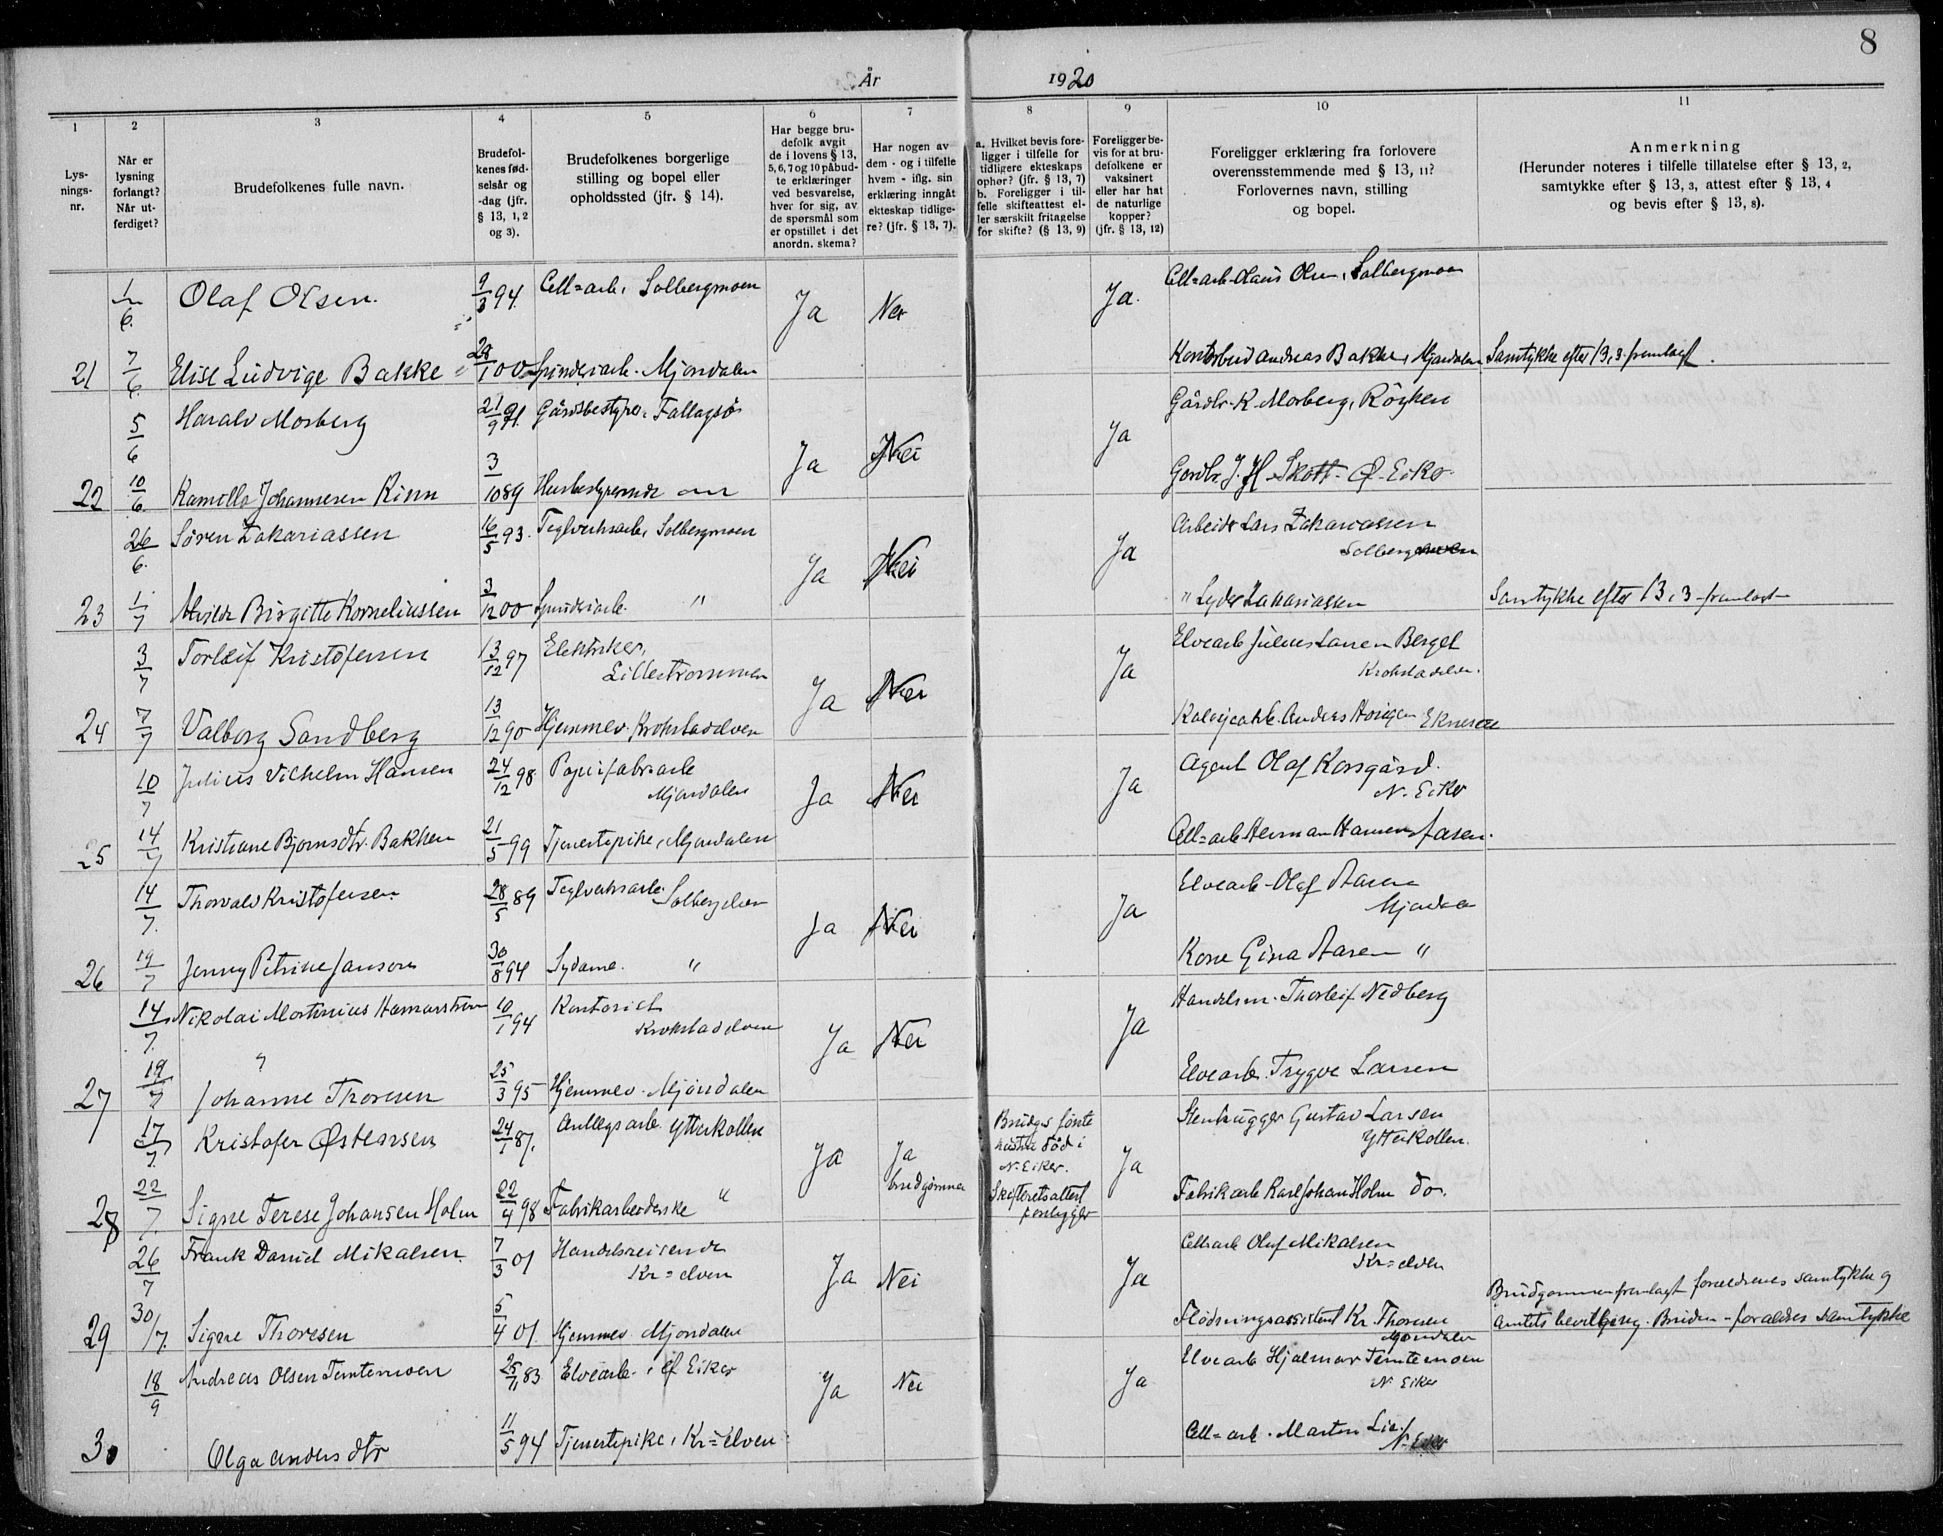 8
År 1920
1 2 3 4 5 6 7 8 9 10 11
Lys-
nings-
nr.
Når er
lysning
forlangt?
Når ut-
ferdiget?
Brudefolkenes fulle navn.
Brudefol-
kenes fød-
selsår og
-dag (jfr.
§ 13, 1, 2
og 3).
Brudefolkenes borgerlige
stilling og bopel eller
opholdssted (jfr. § 14).
Har begge bru-
defolk avgit
de i lovens § 13,
5, 6, 7 og 10 påbud-
te erklæringer
ved besvarelse,
hver for sig, av
de spørsmål som
er opstillet i det
anordn. skema?
Har nogen av
dem - og i tilfelle
hvem - iflg. sin
erklæring inngått
ekteskap tidlige-
re? (jfr. § 13, 7).
a. Hvilket bevis fore-
ligger i tilfelle for
tidligere ekteskaps
ophør? (jfr. § 13, 7)
b. Foreligger i til-
felle skifteattest el-
ler særskilt fritagelse
for skifte? (§ 13, 9)
Foreligger be-
vis for at bru-
defolkene er
vaksinert
eller har hat
de naturlige
kopper?
(jfr. § 13, 12)
Foreligger erklæring fra forlovere
overensstemmende med § 13, 11?
Forlovernes navn, stilling
og bopel.
Anmerkning
(Herunder noteres i tilfelle tillatelse efter § 13, 2,
samtykke efter § 13, 3, attest efter § 13, 4
og bevis efter § 13, 8).
1/6. Olaf Olsen. 9/3 94. Cell=arb. Solbergmoen Ja Nei Ja. Cell=arb. Olsen, Solbergmoen
21 7/6. Elise Ludvige Bakke 1 00 Spinderiarb. Mjøndalen Kontorbud Andreas Bakke, Mjøndalen Samtykke efter 13,3 fremlagt.
5/6 Harald Morberg 21/9 91. Gårdsbestyrer. Ja Nei Ja Gårdbr. K. Morberg, Røyken
22 10/6. Kamilla Johannesen Rinn 3/10 89 Husbestyrerinde Gardbr. J. H. Skott - Ø. Eiker
26/6. Søren Zakariassen 16/5 93. Teglverksarb. Solbergmoen Ja Nei Ja Arbeider Lars Zakariassen
Solberg
23 1/7 Birgitte Korneliussen 3/12 00 Spinderiarb. " " Zakariassen Samtykke efter 13,3 fremlagt
3/7 Torleif Kristofersen 13/12 97 Elektriker,
Lillestrømmen Ja Nei Ja Elvearb. Julius Larsen Berget
Krokstadelven.
24 7/7 Valborg Sandberg 13/12 90 Hjemmev. Krokstadelven Anders
10/7 Julius Vilhelm Hansen 24/12 98 Papirfabr.arb.
Mjøndalen Ja Nei Ja Agent Olaf Korsgård.
N. Eiker
25 14/7 Kristiane Bjørnsdtr. Bakken 21/5 99 Tjenestepike, Mjøndalen Cell=arb. Herman Hansen Aasen.
14/7. Thorvald Kristofersen. 28/5 89 Teglverksarb.
Solbergelven Ja Nei Ja Elvearb. Olaf Aasen
26 19/7 Jenny Petrine Janson 30/8 94 Sydame. " Kone Gina Aasen "
14/7. Nikolai Martinius Hamarstrøm 10/1 94 Kontorist
Krokstadelven Ja Nei Ja Handelsm. Thorleif Nedberg
27 19/7 Johanne Thoresen 25/3 95 Hjemmev. Mjøndalen Elvearb. Trygve Larsen
17/7. Kristofer Østensen 24/1 87. Anlegsarb. Ytterkollen Ja Ja
brudgommen Brudg. første
hustru død i
N. Eiker.
Skifteretsattest
foreligger Ja Stenhugger Gustav Larsen
Ytterkollen.
28 22/7. Signe Terese Johansen Holm 22/4 98 Fabrikarbeiderske " Fabrikarb. Karl Johan Holm do.
26/7 Frank Daniel Mikalsen. 7/3 01 Handelsreisende
Kr=elven Ja Nei Ja Cellearb. Olaf Mikalsen
Kr=elven
29 30/7. Signe Thoresen 5/4 01. Hjemmev. Mjøndalen Flødningsassistent Kr. Thoresen
Mjøndalen Brudgommen fremlagt foreldrenes samtykke og
Amtets bevilling. Bruden - foreldres samtykke
18/9 Andreas Olsen Temtemoen 25/11 83 Elvearb. i Ø. Eiker Ja Nei Ja Elvearb. Hjalmar Temtemoen
N. Eiker
30 Olga Andersdtr 11/5 94 Tjenestepike, Kr=elven Cell=arb. Martin Lie,
N. Eiker